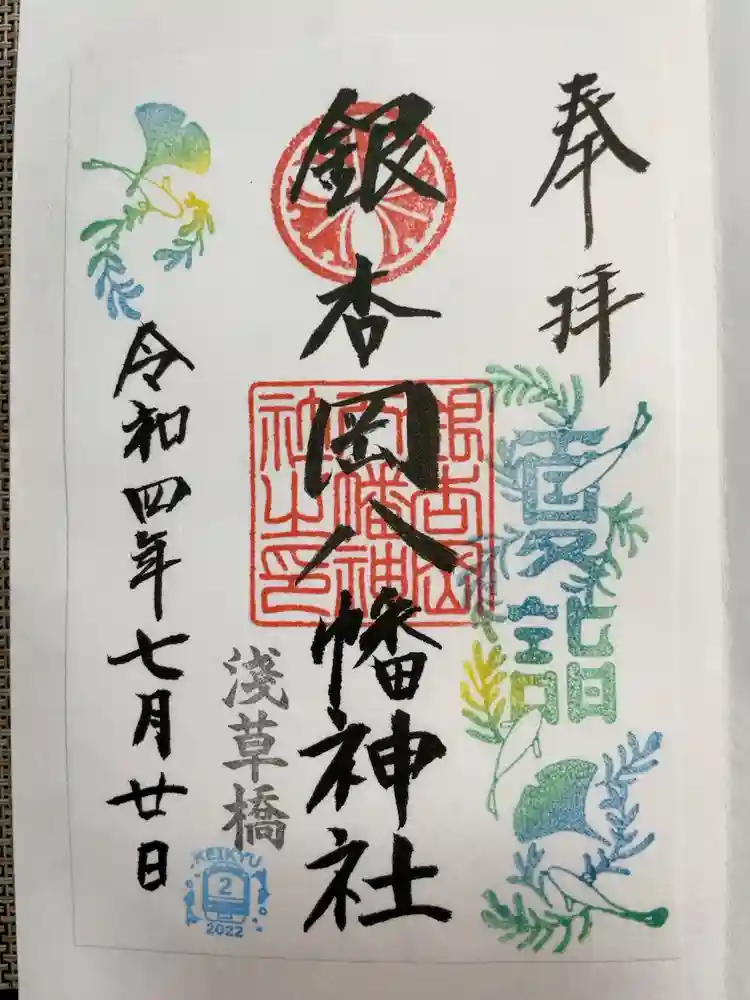 奉拝
夏詣
銀杏岡八幡神社
銀杏岡八幡神社之印
淺草橋
令和四年七月廿日
KEIKYU
2
2022